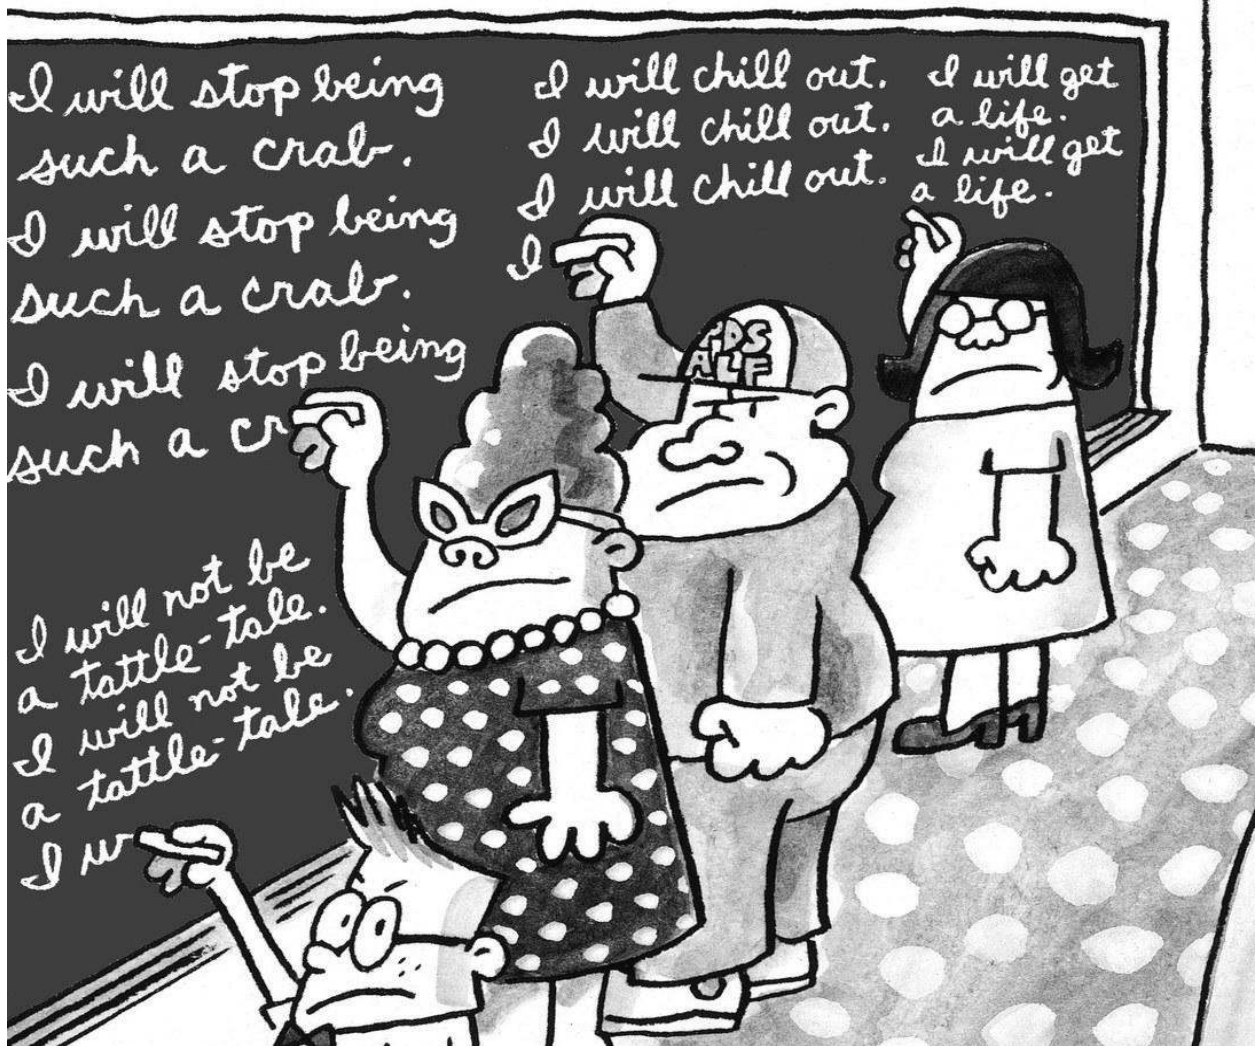 I will stop being
such a crab.
I will stop being
such a crab.
I will stop being
such a cr
I will chill out.
I will chill out.
I will chill out.
I
I will get
a life.
I will get
a life.
I will not be
a tattle-tale.
I will not be
a tattle-tale.
I w